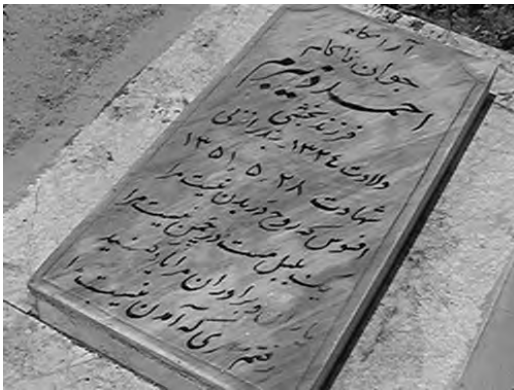 آرامگاه
جوان ناکام
احمد زیبرم
فرزند بخشی
ولادت ۱۳۲٤ بندرانزلی
شهادت ۲۸ ٫ ۵ ٫ ۱۳۵۱
افسوس که روح در بدن نیست مرا
یک بلبل مست در چمن نیست مرا
یاران و برادران مرا یاد کنید
رفتم سفری که آمدن نیست مرا